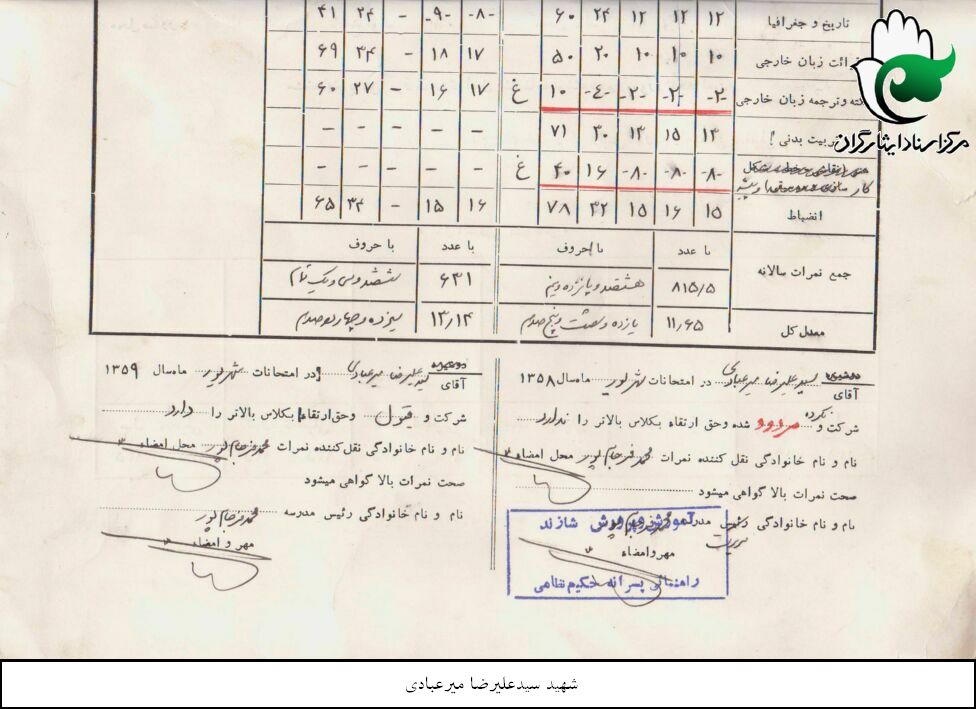 تاریخ و جغرافیا ۱۲ ۱۲ ۱۲ ۲۴ ۶۰ -۸- -۹- - ۲۴ ۴۱
قرائت زبان خارجی ۱۰ ۱۰ ۱۰ ۲۰ ۵۰ ۱۷ ۱۸ - ۳۴ ۶۹
نکته و ترجمه زبان خارجی -۲- -۲- -۲- -۴- ۱۰ غ ۱۷ ۱۶ - ۲۷ ۶۰
تربیت بدنی ! ۱۳ ۱۵ ۱۳ ۳۰ ۷۱ - - - - -
-۸- -۸- -۸- ۱۶ ۴۰ غ - - - - -
انضباط ۱۵ ۱۶ ۱۵ ۳۲ ۷۸ ۱۶ ۱۵ - ۳۴ ۶۵
با عدد با حروف با عدد با حروف
جمع نمرات سالانه ۸۱۵/۵ هشتصد و پانزده و نیم ۶۳۱ ششصد و سی و یک تمام
معدل کل ۱۱/۶۵ یازده و شصت و پنج صدم ۱۳/۱۴ سیزده و چهارده صدم
آقای سید علیرضا میرعبادی در امتحانات شهریور ماه سال ۱۳۵۸
شرکت و نکرده مردود شده وحق ارتقاء بکلاس بالاتر را ندارد
نام و نام خانوادگی نقل کننده نمرات محمد فرجام پور محل امضاء
صحت نمرات بالا گواهی میشود
نام و نام خانوادگی رئیس مدرسه
مهر و امضاء
آموزش و پرورش شازند
راهنمائی پسرانه حکیم نظامی
آقای سید علیرضا میرعبادی در امتحانات شهریور ماه سال ۱۳۵۹
شرکت و قبول وحق ارتقاء بکلاس بالاتر را دارد
نام و نام خانوادگی نقل کننده نمرات محمد فرجام پور محل امضاء
صحت نمرات بالا گواهی میشود
نام و نام خانوادگی رئیس مدرسه محمد فرجام پور
مهر و امضاء
مرکز اسناد ایثارگران
شهید سیدعلیرضا میرعبادی